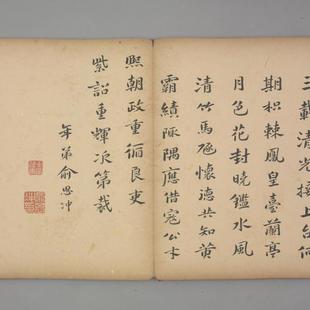 三載清光接上台何
期枳棘鳳皇臺蘭亭
月色花封曉鑑水風
清竹馬廻懷德共知黃
霸績陬隅應借寇公才
熙朝政重循良吏
紫詔重輝次第裁
年弟俞思冲